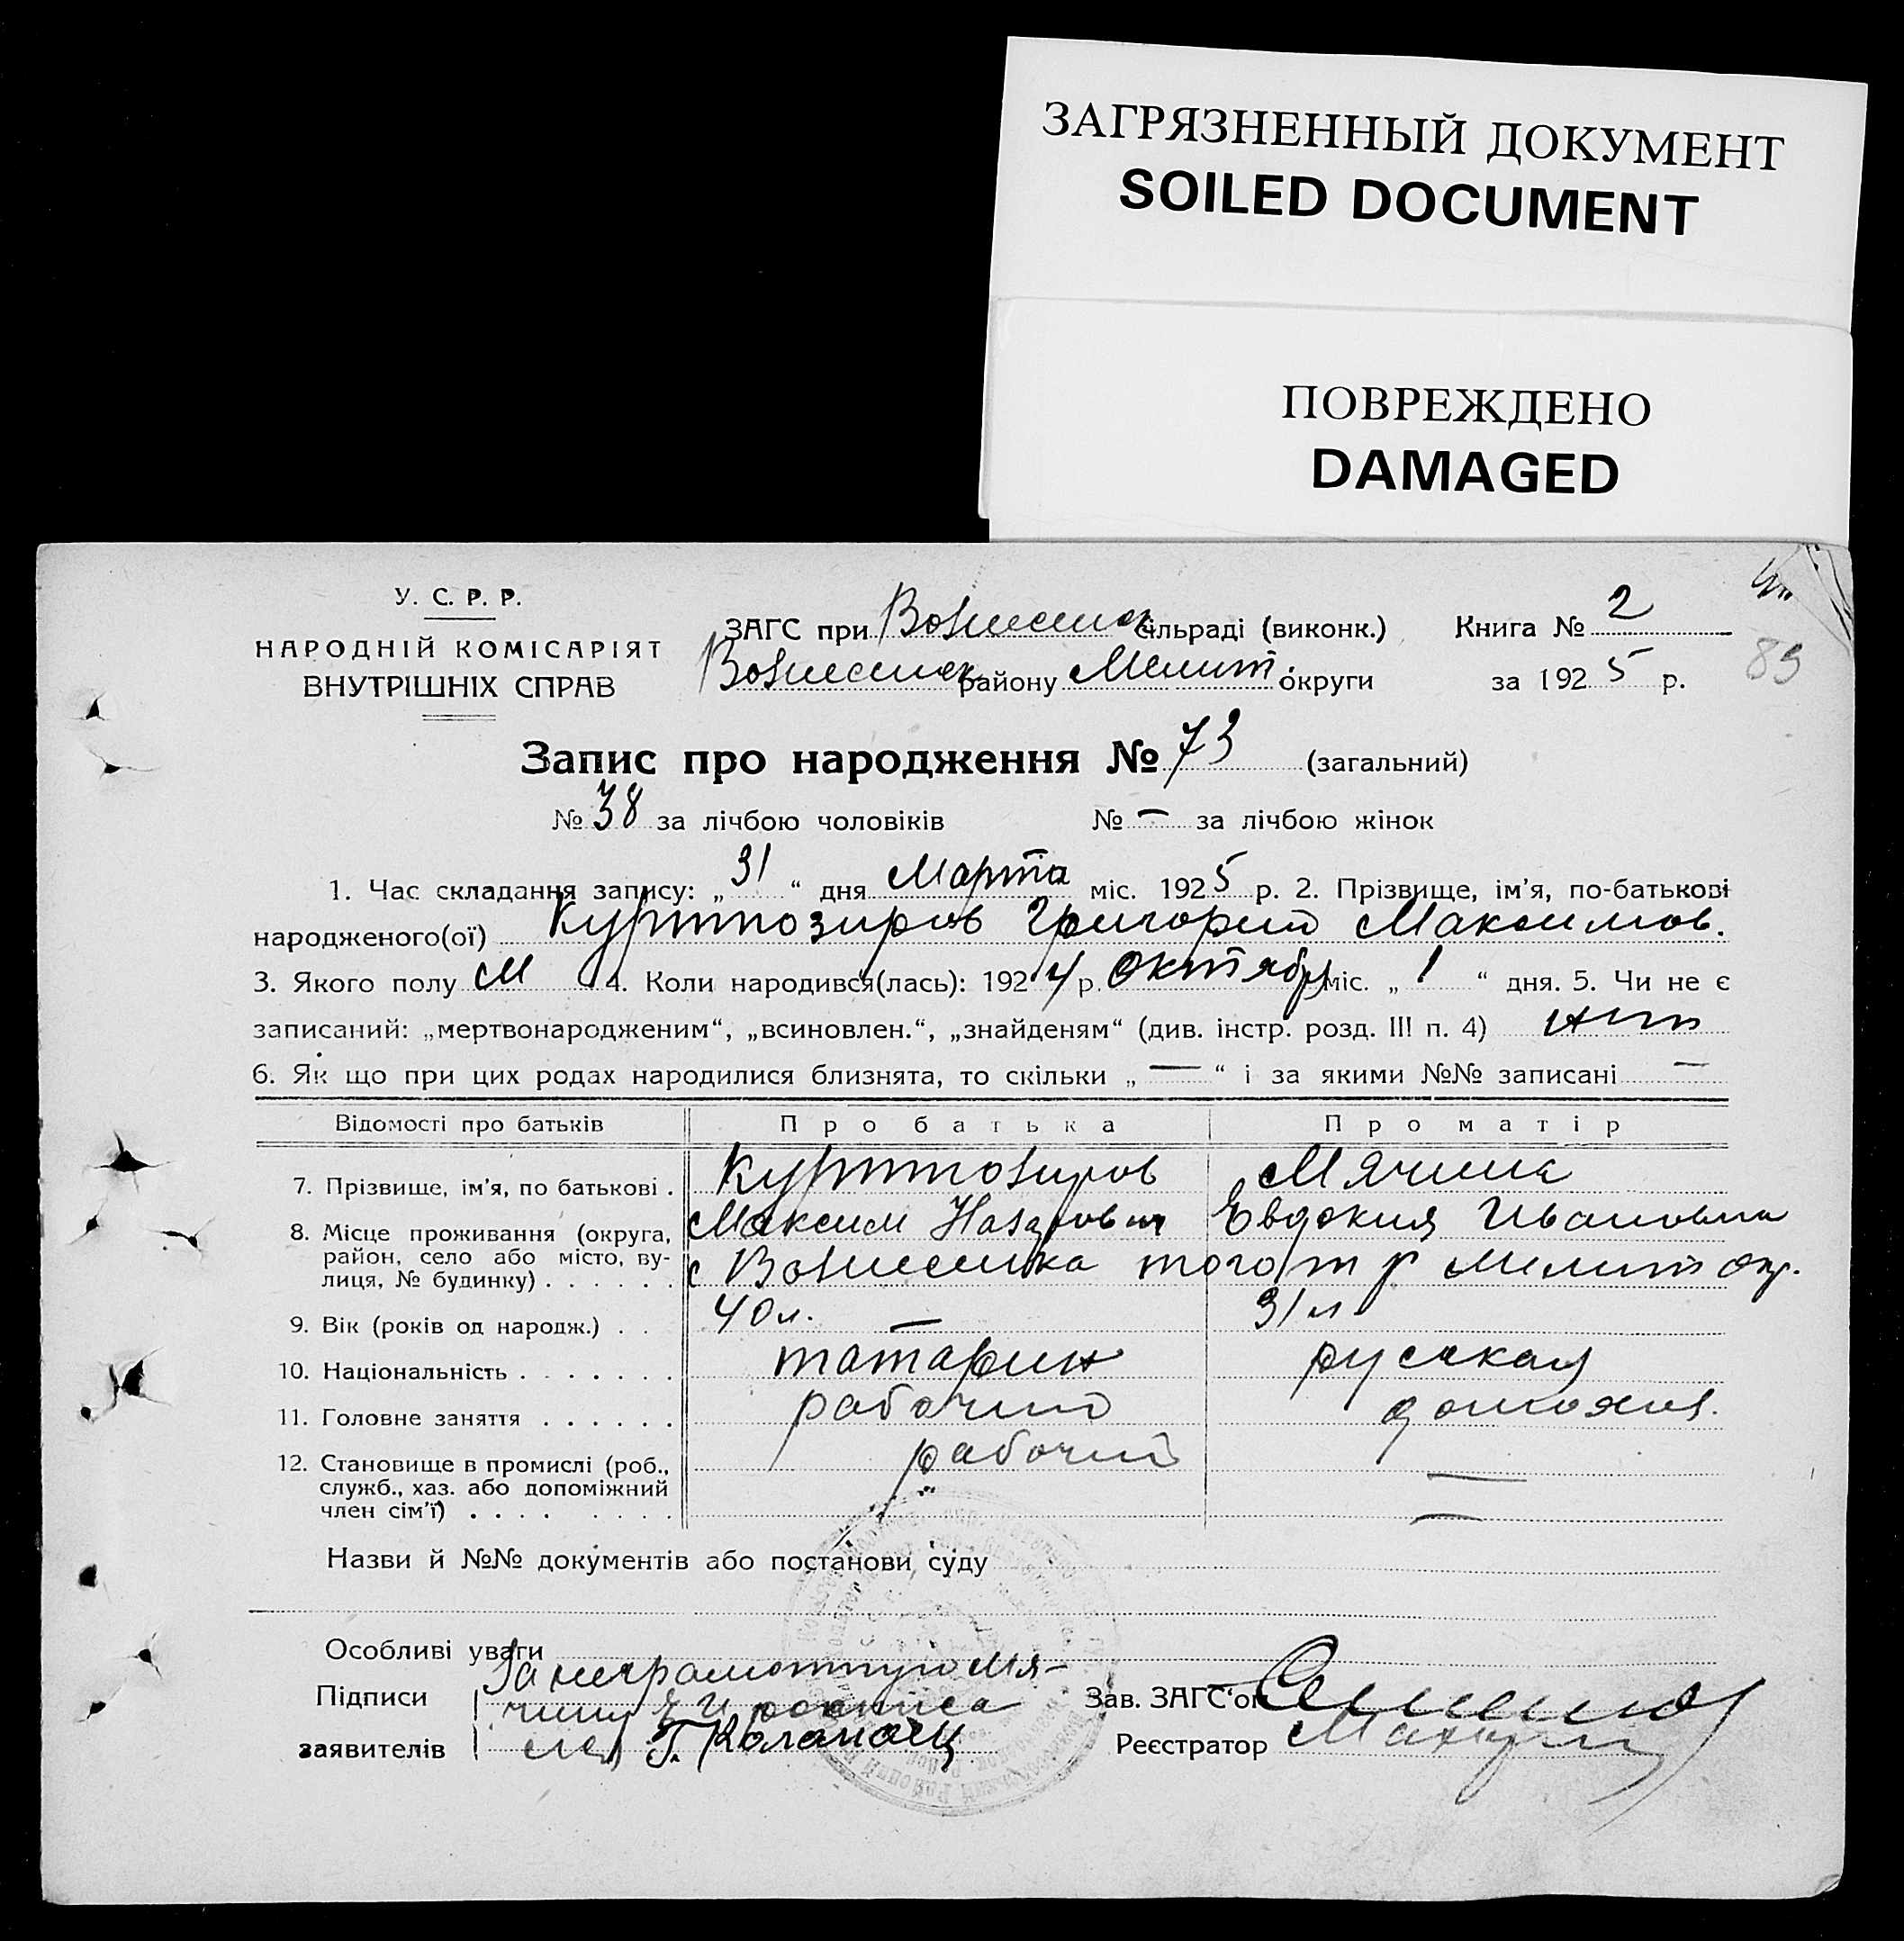 ЗАГРЯЗНЕННЫЙ ДОКУМЕНТ
SOILED DOCUMENT
ПОВРЕЖДЕНО
DAMAGED
У. С. Р. Р.
НАРОДНІЙ КОМІСАРІЯТ
ВНУТРІШНІХ СПРАВ
ЗАГС при Вознесенск сільраді (виконк.) Книга № 2
Вознесенск району Мелит. округи за 1925 р.
89
Запис про народження № 73 (загальний)
№ 38 за лічбою чоловіків № — за лічбою жінок
1. Час складання запису: „31“ дня Марта міс. 1925 р. 2. Прізвище, ім'я, по-батькові
народженого(ої) Курттозиров Григорий Максимов.
3. Якого полу М 4. Коли народився(лась): 1924 р. Октябр міс. „1“ дня. 5. Чи не є
записаний: „мертвонародженим“, „всиновлен.“, „знайденям“ (див. інстр. розд. III п. 4) нет
6. Як що при цих родах народилися близнята, то скільки „—“ і за якими №№ записані —
Відомості про батьків Про батька Про матір
7. Прізвище, ім'я, по батькові . Курттозиров Мячина
Максим Назарович Евдокия Ивановна
8. Місце проживання (округа, район, село або місто, вулиця, № будинку) . . . . . . с Вознесенка того ж р Мелит окр.
9. Вік (років од народж.) . . 40 л. — 31 л
10. Національність . . . . . . . татарин русская
11. Головне заняття . . . . . . рабочий домохоз.
12. Становище в промислі (роб., служб., хаз. або допоміжний член сім'ї) . . . . . . . . рабочий —
—
Назви й №№ документів або постанови суду
Особливі уваги
За неграмотную Мя-
Підписи чину Е И росписа
заявителів лся Г. Коломоец
Зав. ЗАГС'ом
Реєстратор